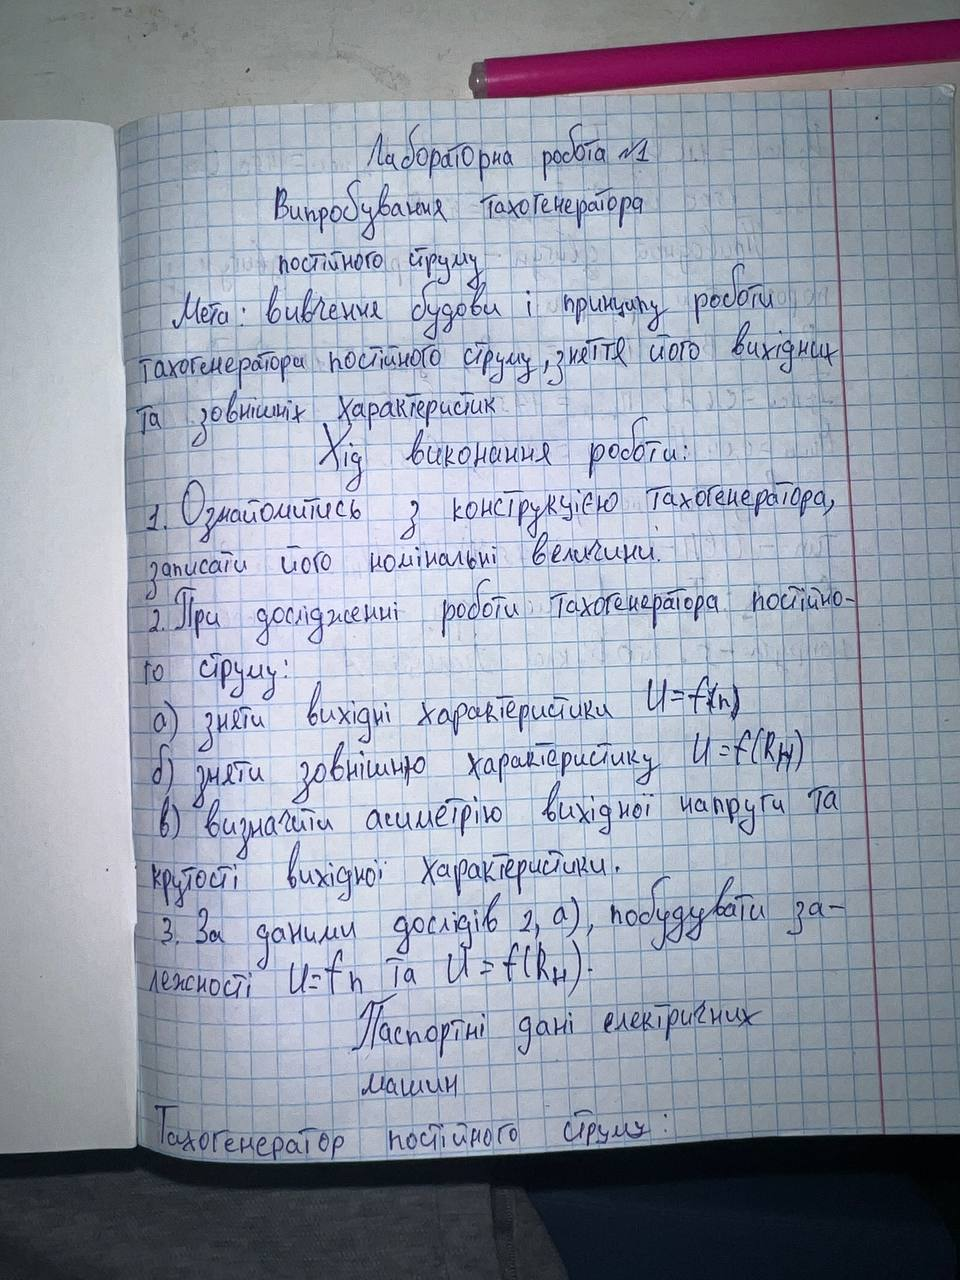 Лабораторна робота №1
Випробування тахогенератора
постійного струму
Мета: вивчення будови і принципу роботи
тахогенератора постійного струму, зняття його вихідних
та зовнішніх характеристик
Хід виконання роботи:
1. Ознайомитись з конструкцією тахогенератора,
записати його номінальні величини.
2. При дослідженні роботи тахогенератора постійно-
го струму:
а) зняти вихідні характеристики U=f(n)
б) зняти зовнішню характеристику U=f(Rн)
в) визначити асиметрію вихідної напруги та
крутості вихідної характеристики.
3. За даними дослідів 2, а), побудувати за-
лежності U=fn та U=f(Rн).
Паспортні дані електричних
машин
Тахогенератор постійного струму: